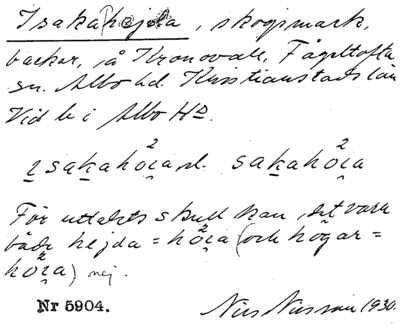 Isakahejda, skogsmark,
backar, på Kronovall, Fågeltofta
sn. Albo hd. Kristianstads län
Vid b i Albo Hd.
isakahöia el. sakahöia
För uttalets skull kan det vara
både hejda = höia (och högar =
höia) nej.
Nr 5904. Nils Nilsson 1930.